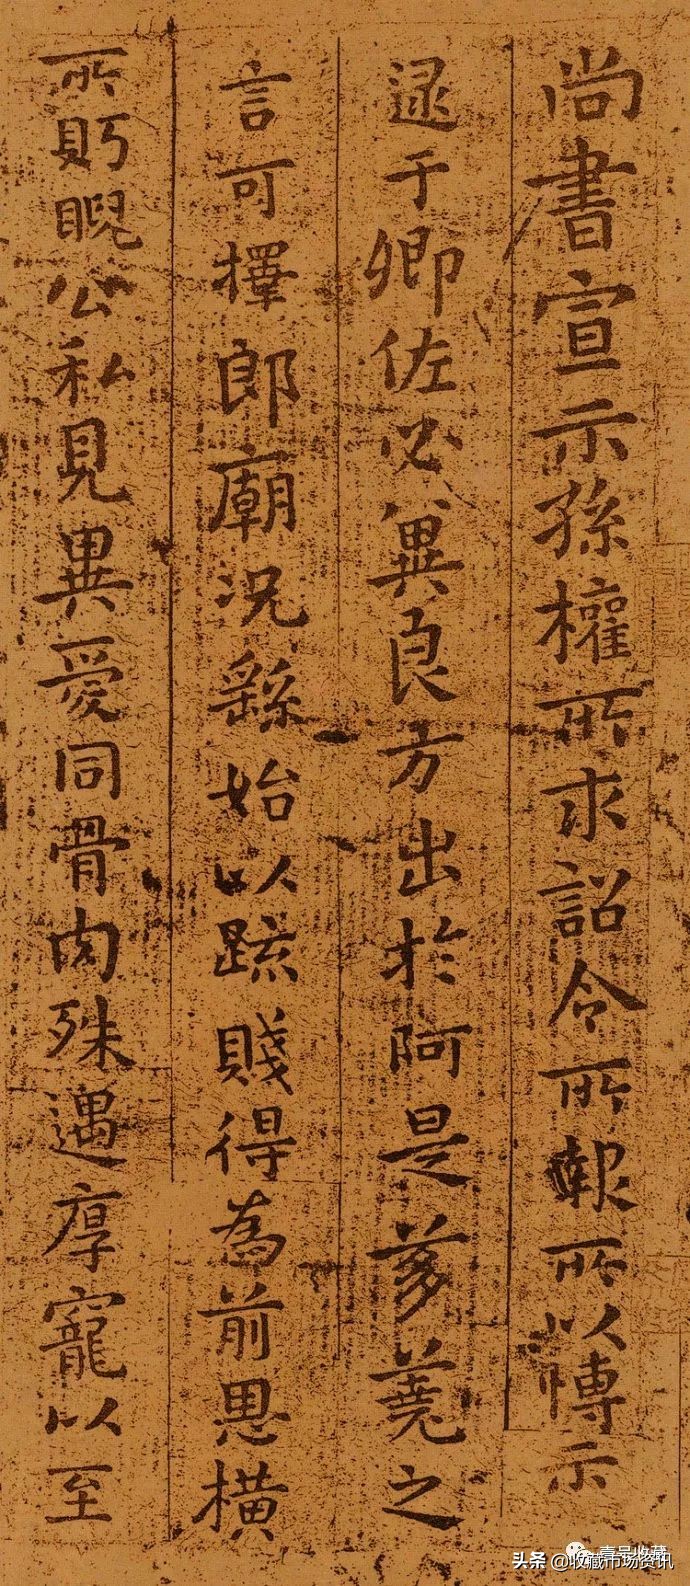 尚書宣示孫權所求詔令所報所以博示
逮于卿佐必冀良方出於阿是芻蕘之
言可擇郎廟況繇始以疏賤得為前恩橫
所眄睨公私見異愛同骨肉殊遇厚寵以至
壹号收藏
头条 @收藏市场资讯